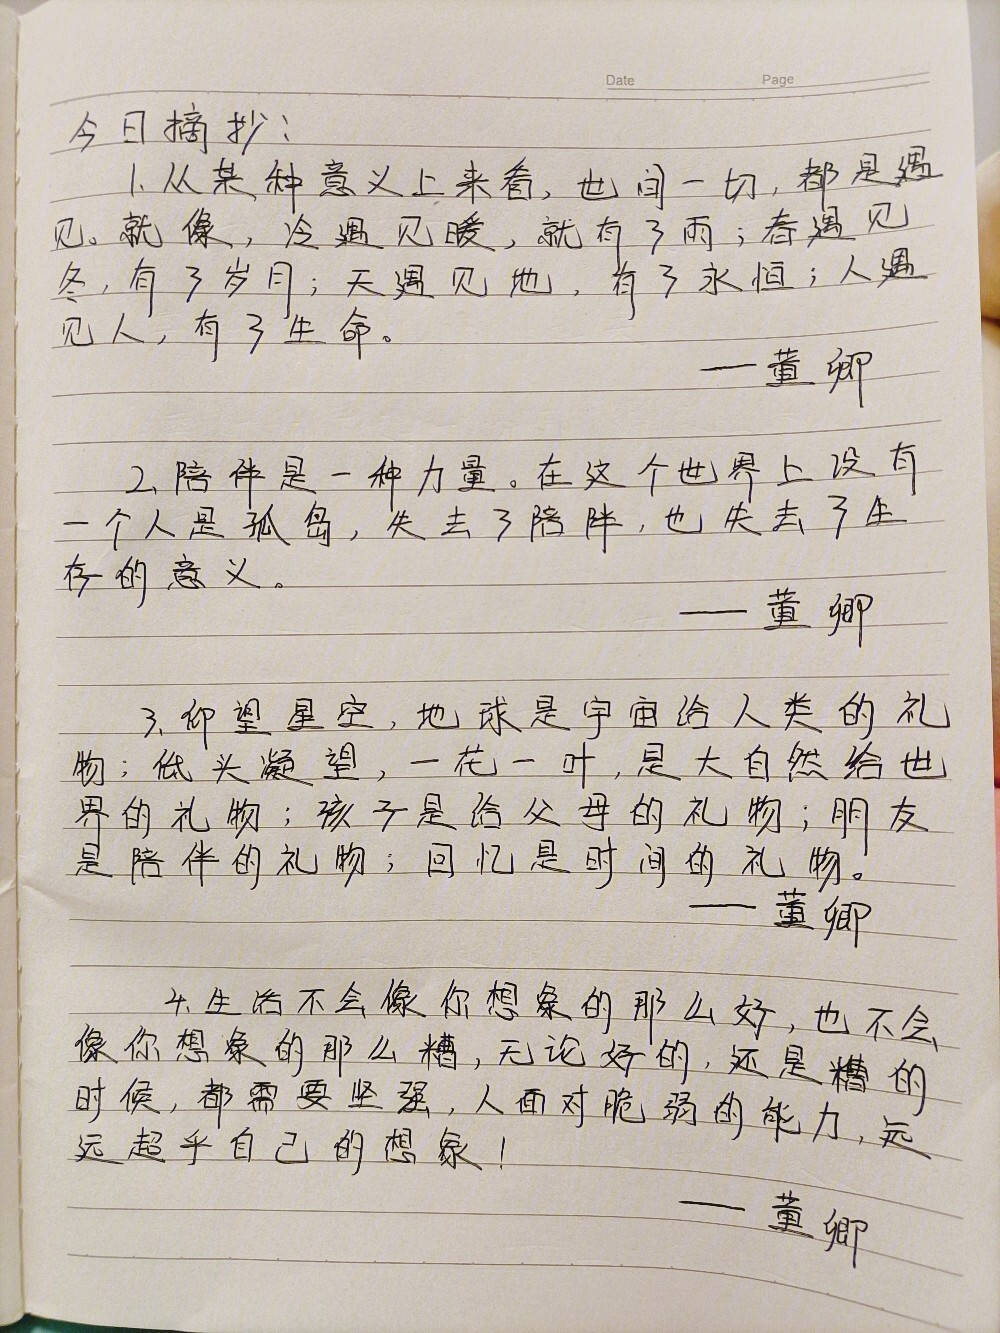 Date Page
今日摘抄：
1.从某种意义上来看，世间一切，都是遇
见。就像，冷遇见暖，就有了雨；春遇见
冬，有了岁月；天遇见地，有了永恒；人遇
见人，有了生命。
——董卿
2.陪伴是一种力量。在这个世界上没有
一个人是孤岛，失去了陪伴，也失去了生
存的意义。
——董卿
3.仰望星空，地球是宇宙给人类的礼
物；低头凝望，一花一叶，是大自然给世
界的礼物；孩子是给父母的礼物；朋友
是陪伴的礼物；回忆是时间的礼物。
——董卿
4.生活不会像你想象的那么好，也不会
像你想象的那么糟，无论好的，还是糟的
时候，都需要坚强，人面对脆弱的能力，远
远超乎自己的想象！
——董卿